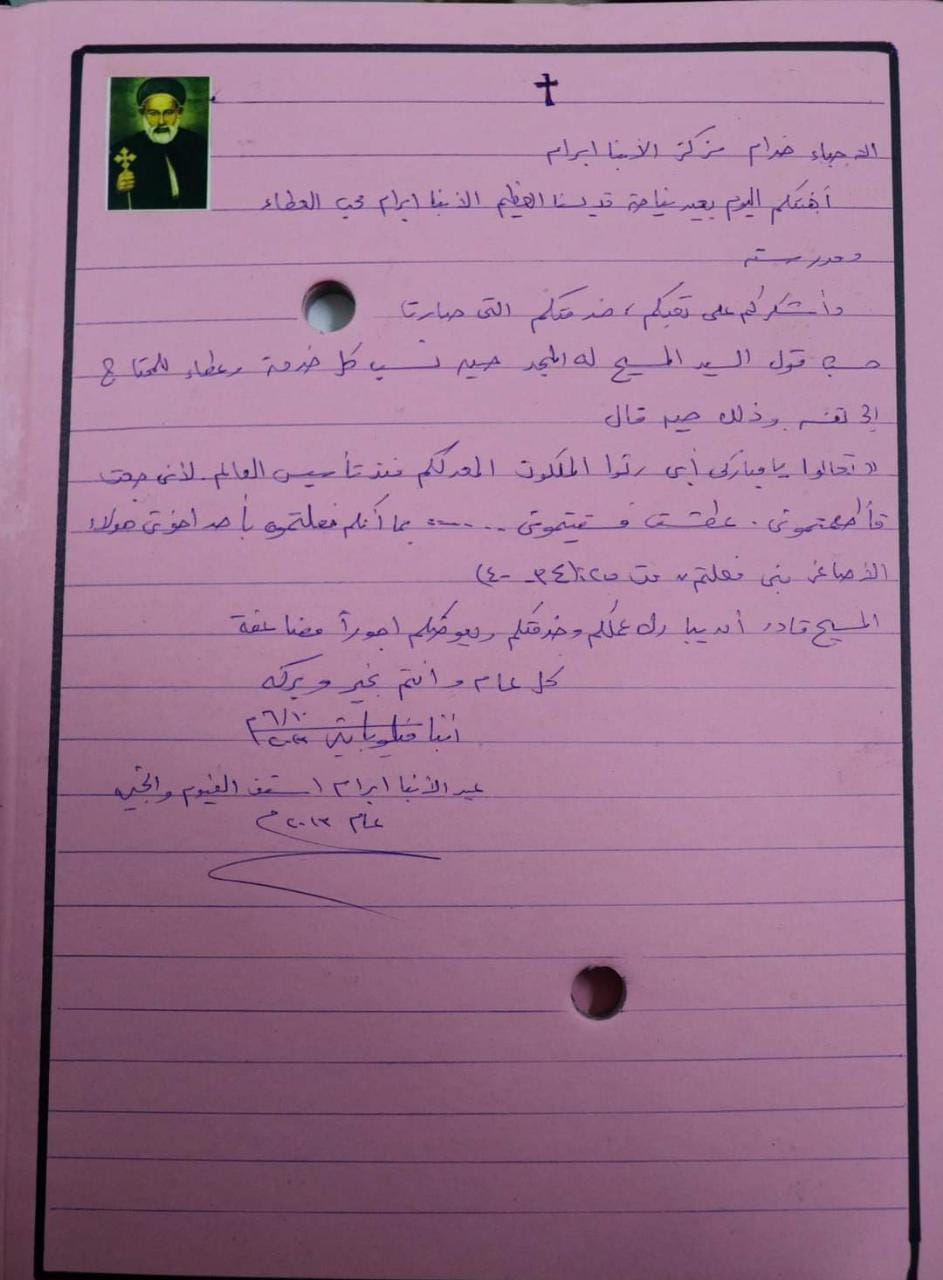 ✝
الأحباء خدام مركز الأنبا ابرام
أهنئكم اليوم بعيد نياحة قديسنا العظيم الأنبا ابرام محب العطاء
ومدرسته
وأشكركم على تعبكم، خدمتكم التى
حسب قول السيد المسيح له المجد حين نسب كل خدمة وعطاء للمحتاج
إلى نفسه وذلك حين قال
" تعالوا يا مباركى أبى رثوا الملكوت المعد لكم منذ تأسيس العالم. لأنى جعت
فأطعمتمونى. عطشت فسقيتمونى ...... بما أنكم فعلتموه بأحد اخوتى هولاء
الأصاغر فبى فعلتم " مت ٢٥: (٣٤ - ٤٠)
المسيح قادر أن يبارك عملكم وخدمتكم ويعوضكم اجوراً مضاعفة
كل عام وأنتم بخير وبركه
انبا ٦/١٠
عيد الأنبا ابرام اسقف الفيوم والجيزه
عام ٢٠١٣ م